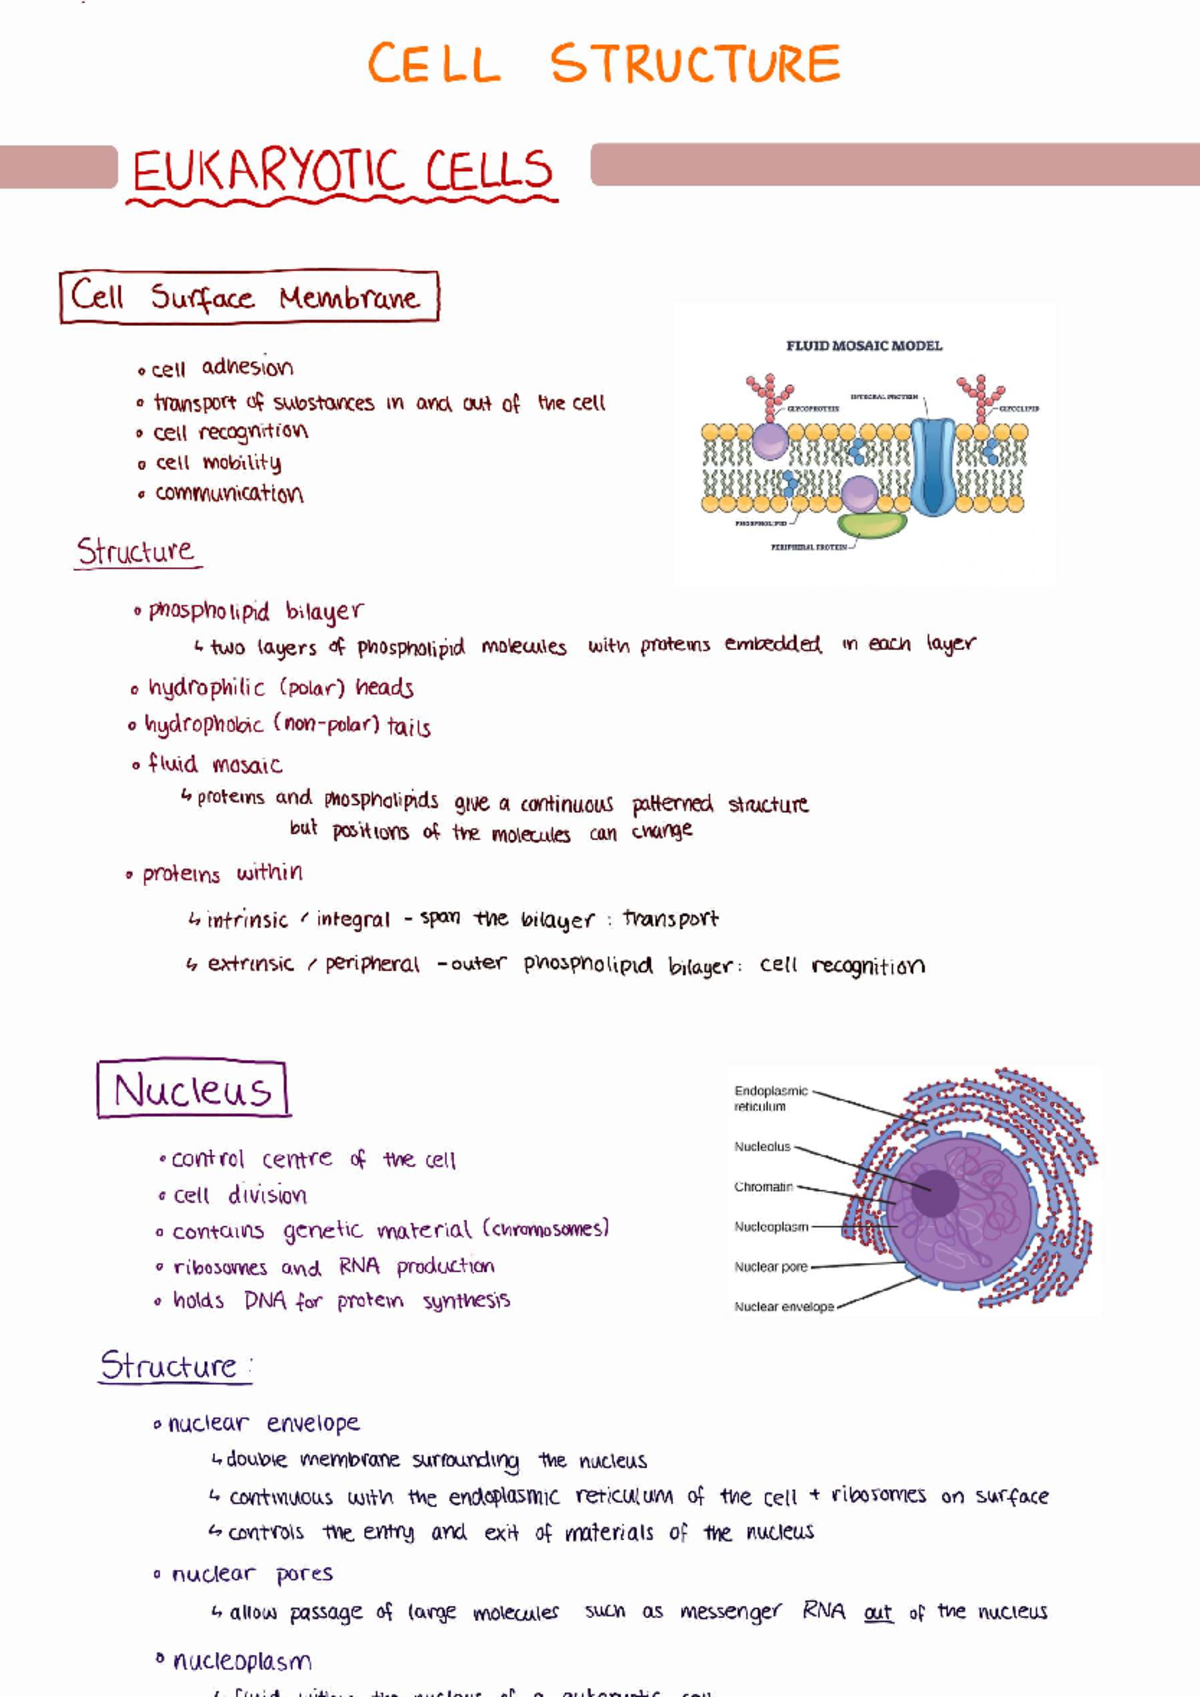 CELL STRUCTURE
EUKARYOTIC CELLS
Cell Surface Membrane
∘ cell adhesion
∘ transport of substances in and out of the cell
∘ cell recognition
∘ cell mobility
∘ communication
FLUID MOSAIC MODEL
GLYCOPROTEIN
INTEGRAL PROTEIN
GLYCOLIPID
PHOSPHOLIPID
PERIPHERAL PROTEIN
Structure
∘ phospholipid bilayer
↳ two layers of phospholipid molecules with proteins embedded in each layer
∘ hydrophilic (polar) heads
∘ hydrophobic (non-polar) tails
∘ fluid mosaic
↳ proteins and phospholipids give a continuous patterned structure
but positions of the molecules can change
∘ proteins within
↳ intrinsic / integral - span the bilayer : transport
↳ extrinsic / peripheral - outer phospholipid bilayer : cell recognition
Nucleus
∘ control centre of the cell
∘ cell division
∘ contains genetic material (chromosomes)
∘ ribosomes and RNA production
∘ holds DNA for protein synthesis
Endoplasmic
reticulum
Nucleolus
Chromatin
Nucleoplasm
Nuclear pore
Nuclear envelope
Structure :
∘ nuclear envelope
↳ double membrane surrounding the nucleus
↳ continuous with the endoplasmic reticulum of the cell + ribosomes on surface
↳ controls the entry and exit of materials of the nucleus
∘ nuclear pores
↳ allow passage of large molecules such as messenger RNA out of the nucleus
∘ nucleoplasm
↳ fluid within the nucleus of a eukaryotic cell